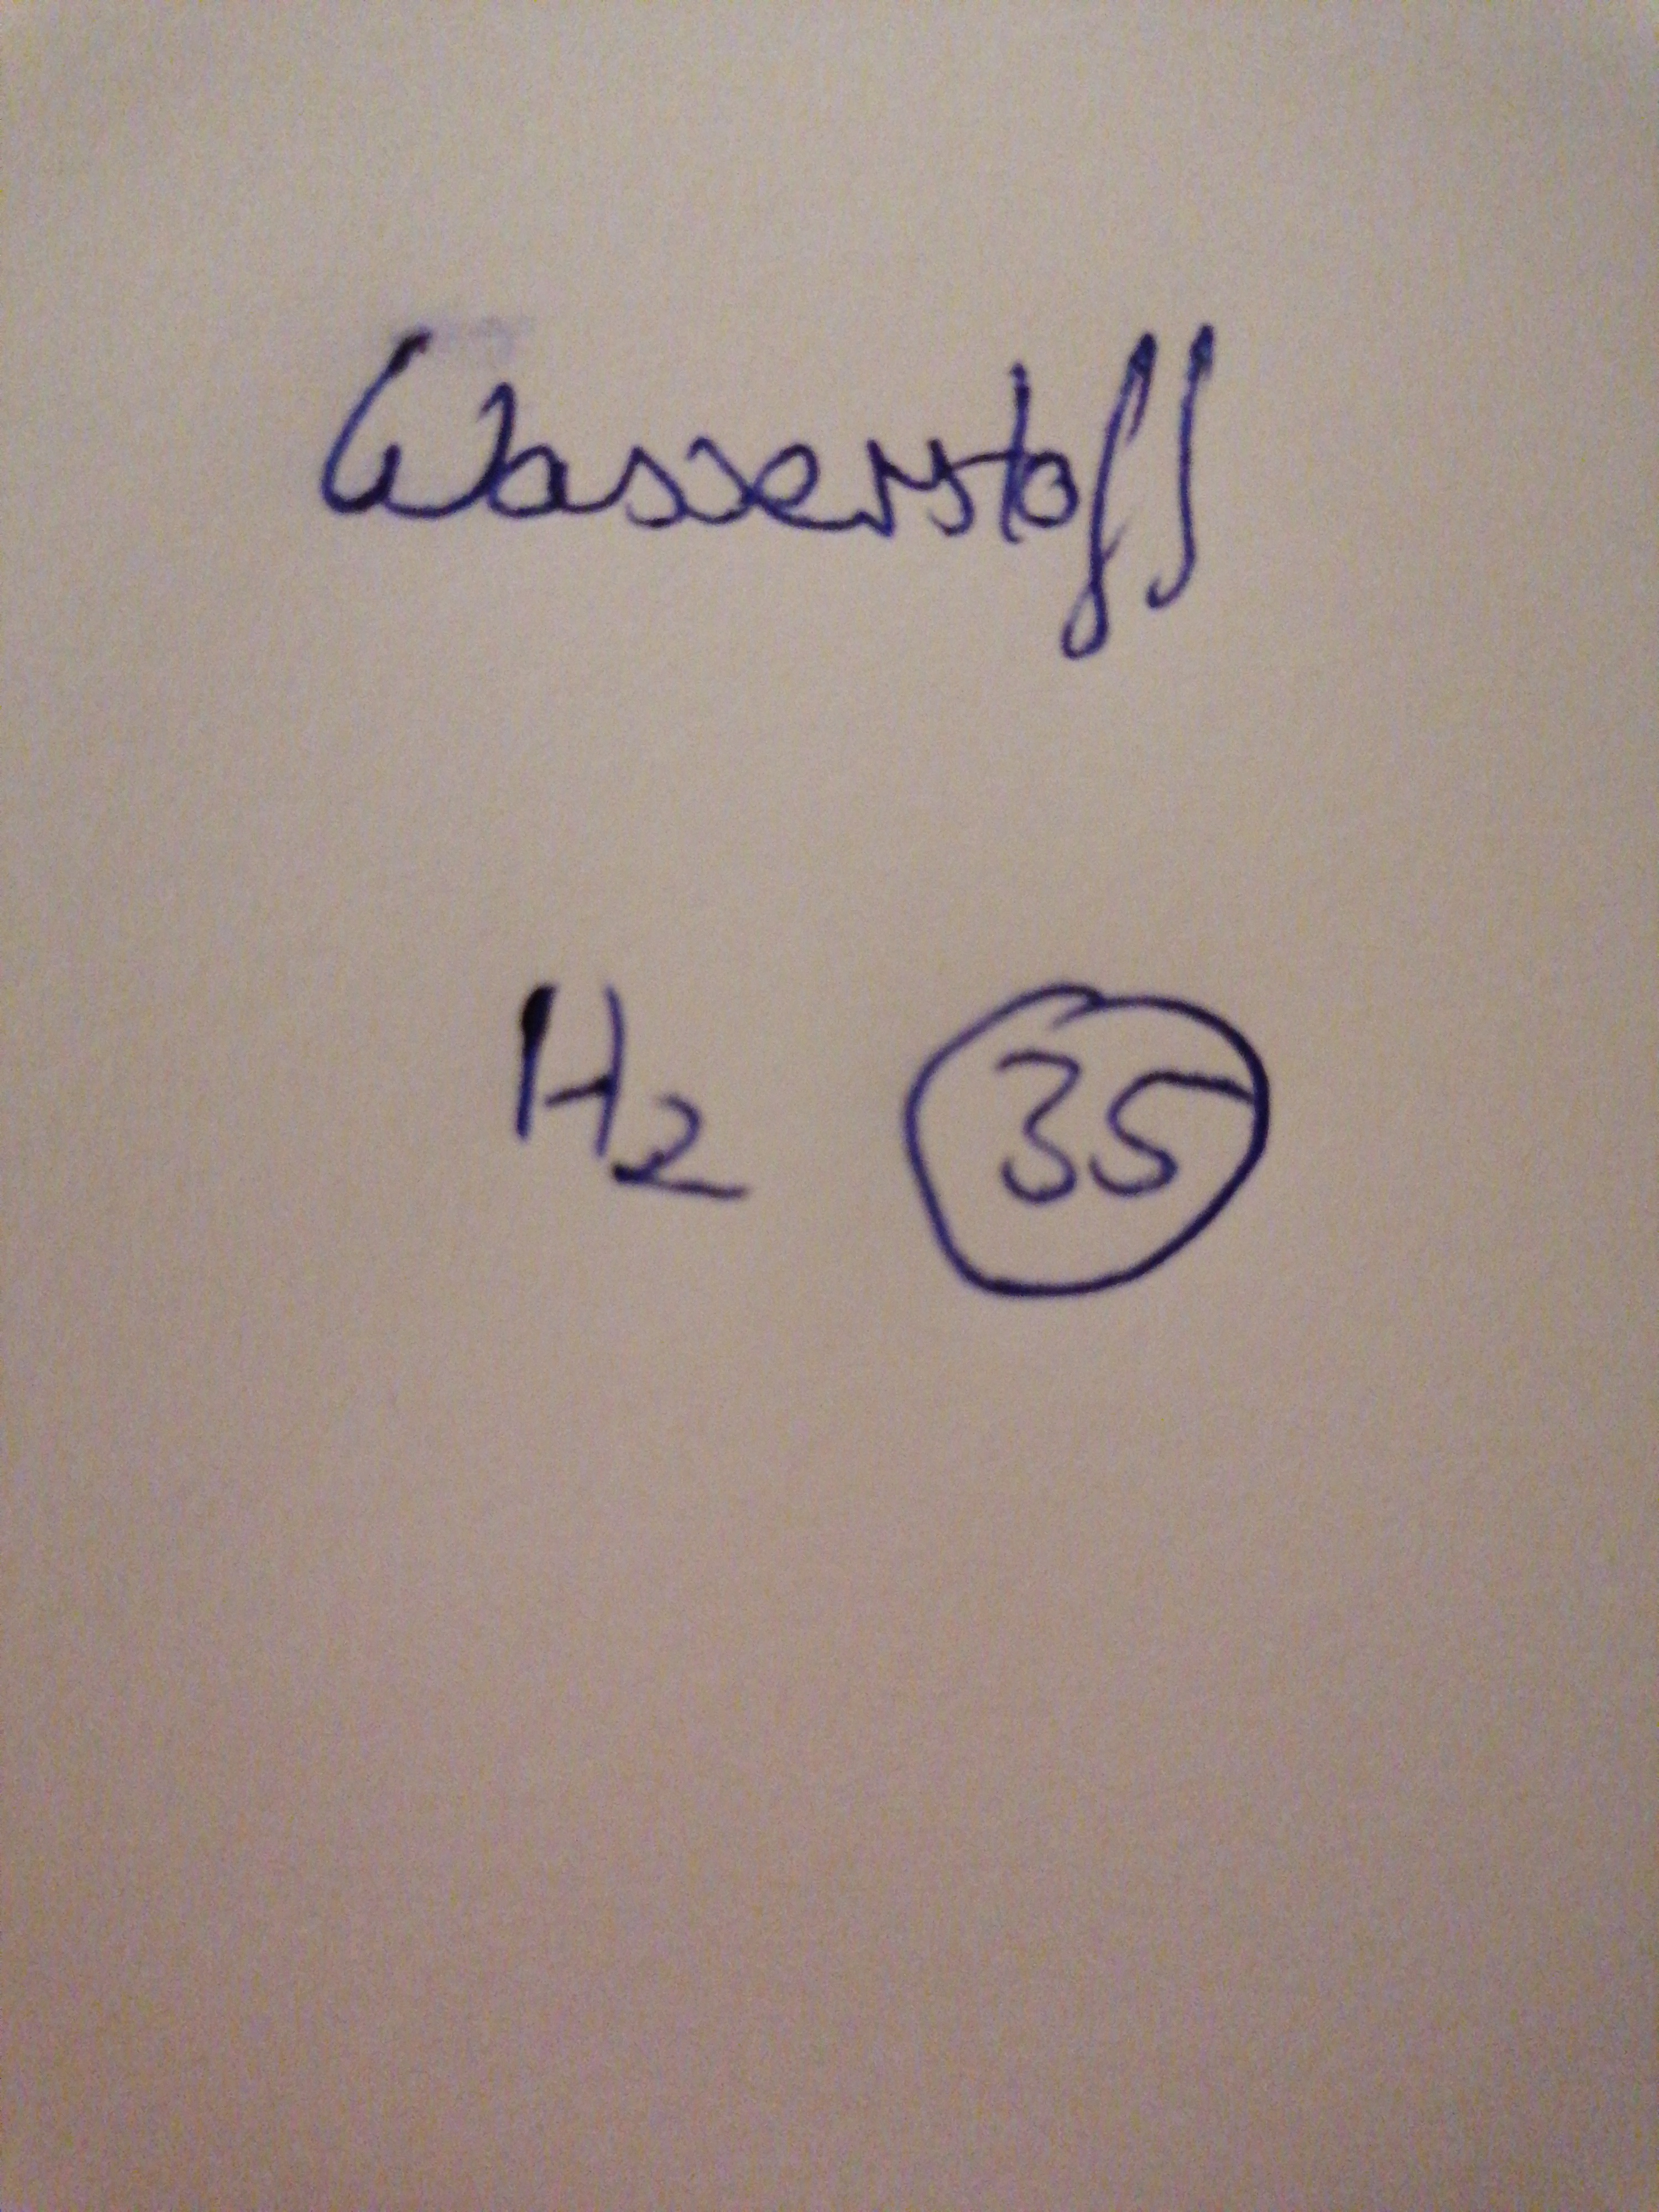 Wasserstoff
H₂ 35